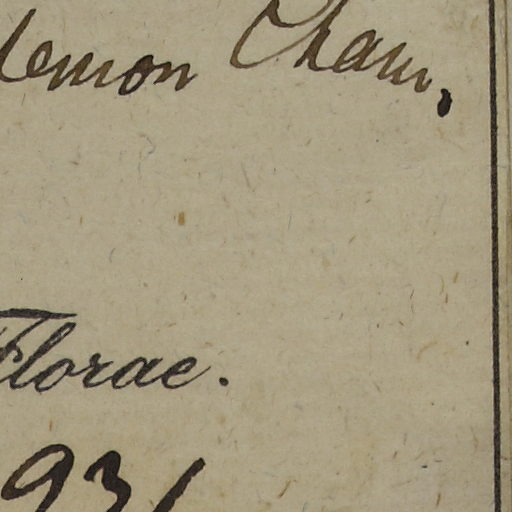 lemon Cham,
Florae.
931